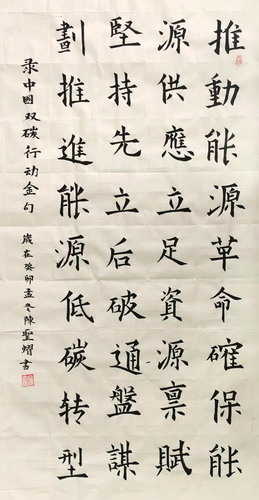 推動能源革命確保能
源供應立足資源禀賦
堅持先立后破通盤謀
劃推進能源低碳转型
录中国双碳行动金句
歲在癸卯孟冬陳聖熠書